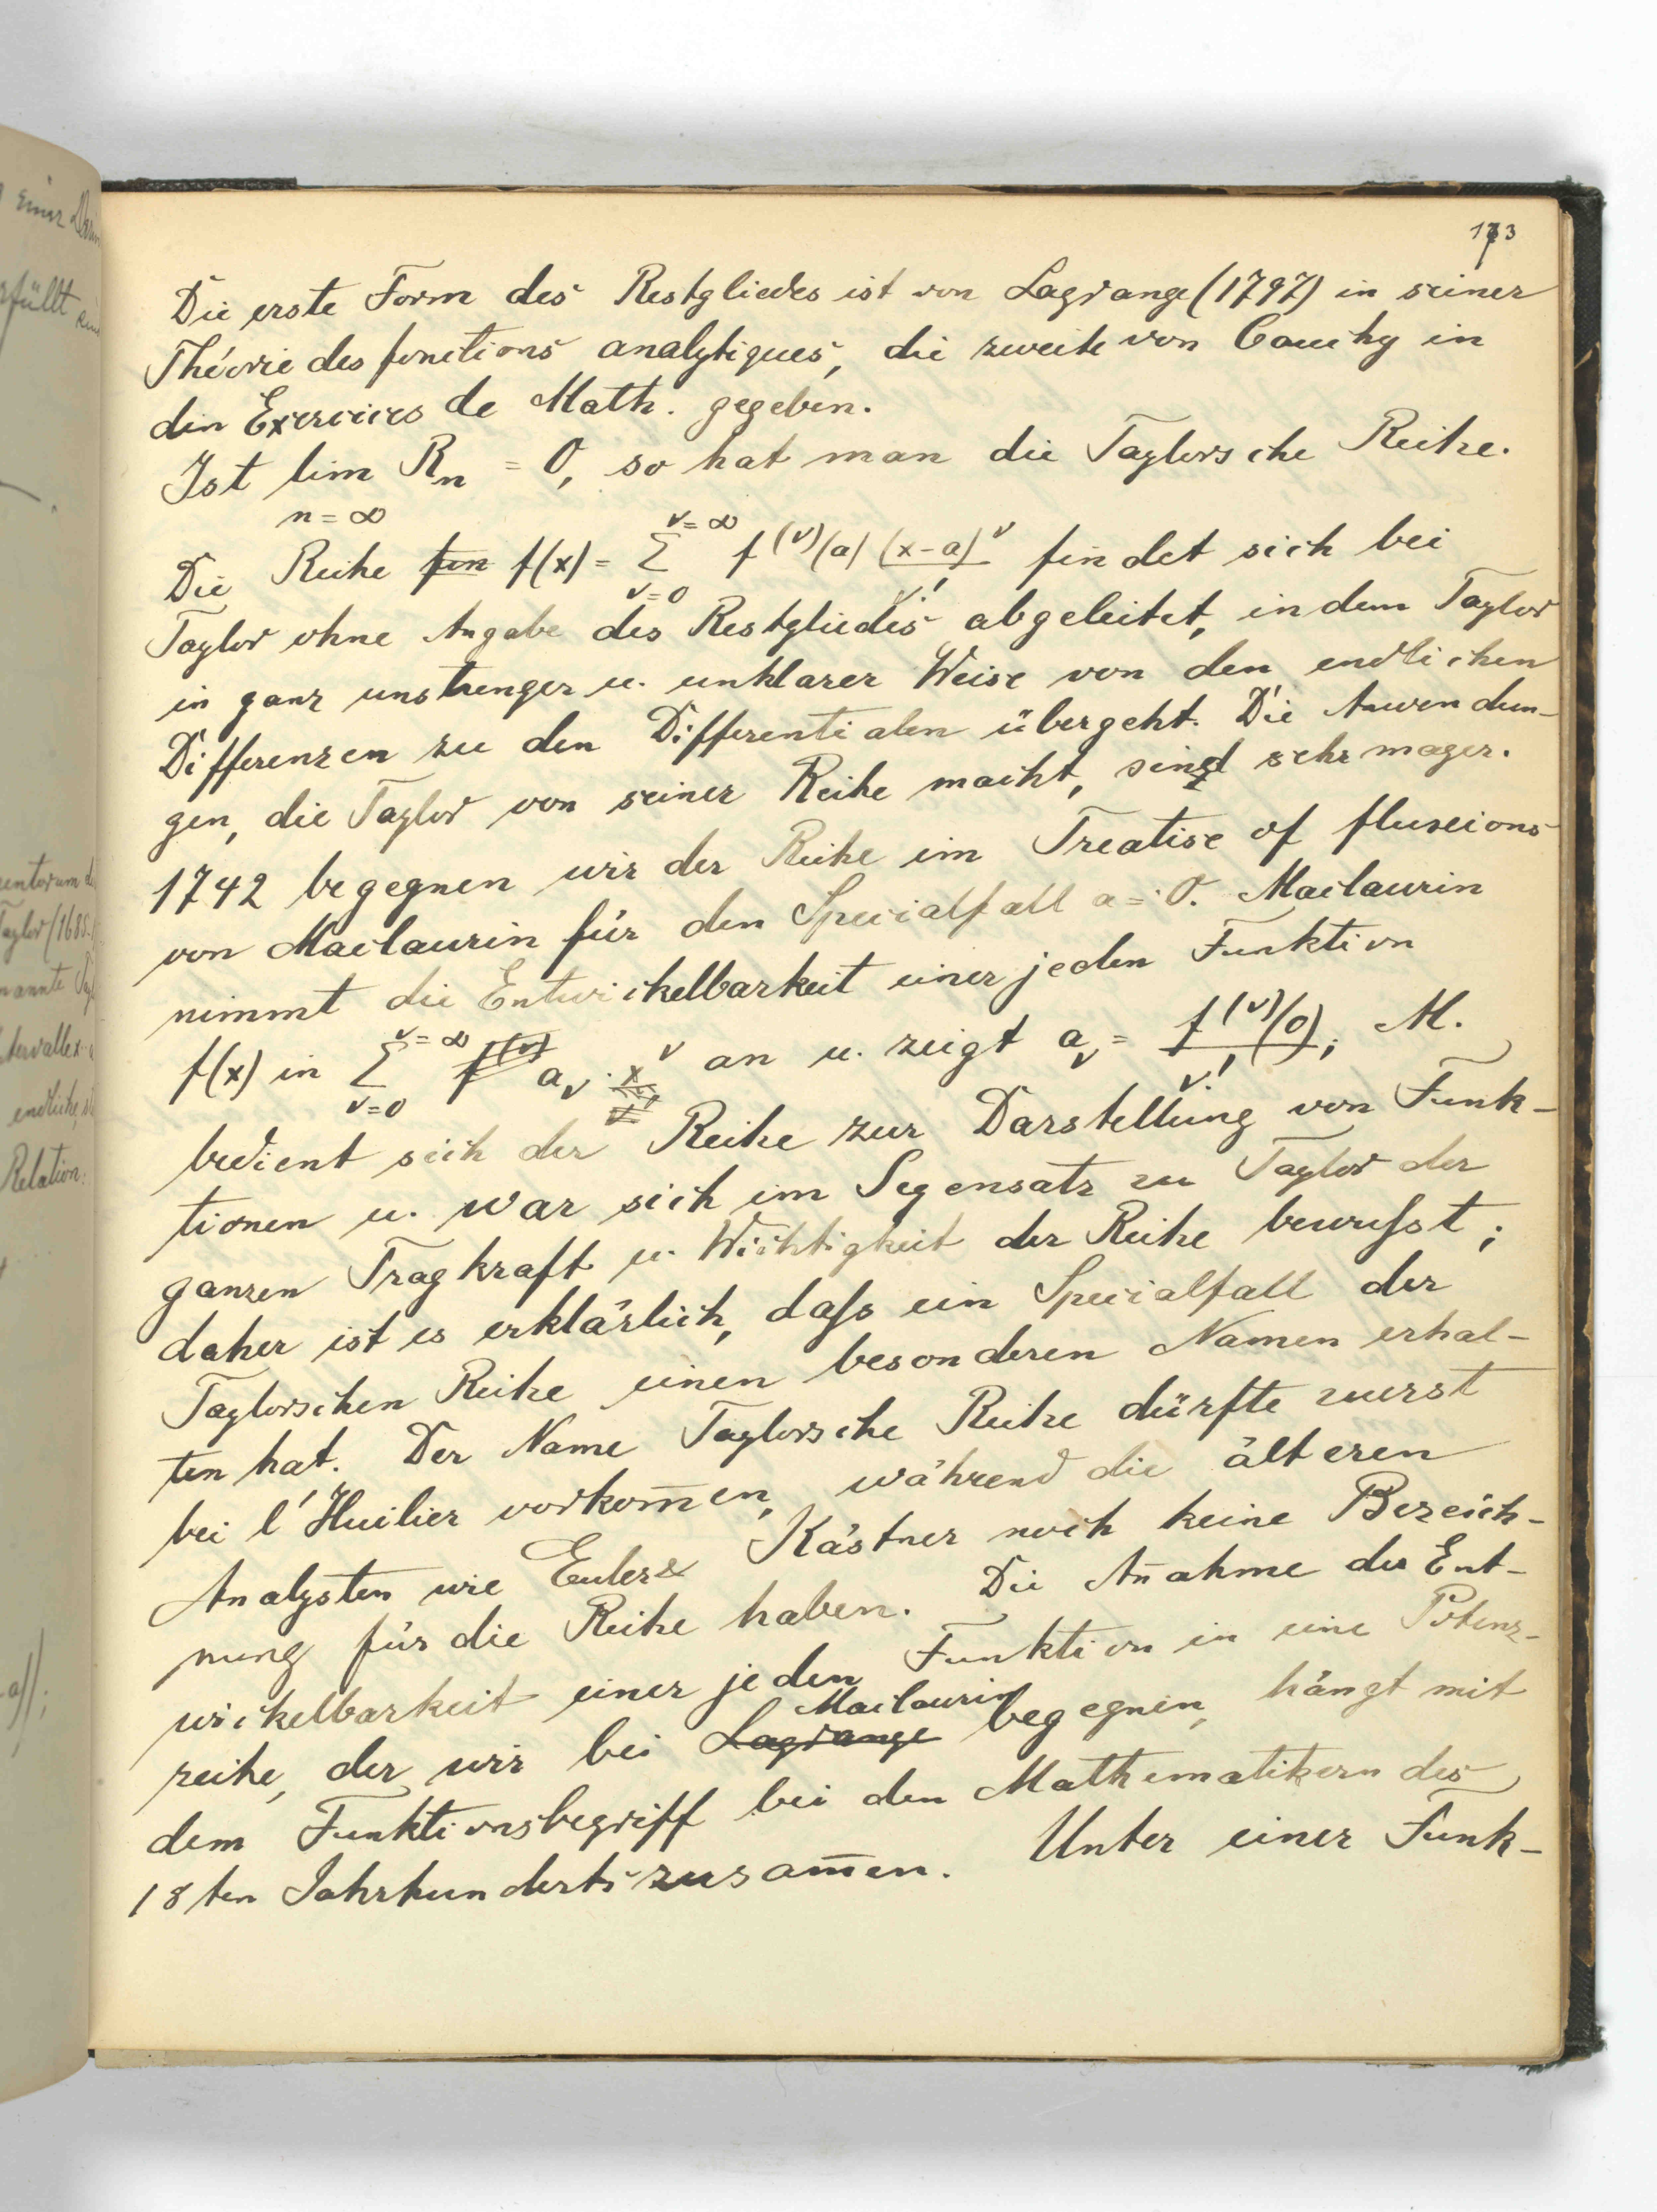 einer
173
Die erste Form des Restgliedes ist von Lagrange (1797) in seiner
Théorie des fonctions analytiques, die zweite von Cauchy in
den Exercices de Math. gegeben.
Ist lim Rn = 0, so hat man die Taylorsche Reihe.
n = ∞
Die Reihe fun f(x) = Σ_{ν=0}^{ν=∞} f^(ν)(a) (x-a)^ν/ν! findet sich bei
Taylor ohne Angabe des Restgliedes abgeleitet, indem Taylor
in ganz unstrenger u. unklarer Weise von den endlichen
Differenzen zu den Differentialen übergeht. Die Anwendun-
gen, die Taylor von seiner Reihe macht, sind sehr mager.
1742 begegnen wir der Reihe im Treatise of fluxions
von Maclaurin für den Specialfall a = 0. Maclaurin
nimmt die Entwickelbarkeit einer jeden Funktion
f(x) in Σ_{ν=0}^{ν=∞} f^(ν) a_ν · x^ν an u. zeigt a_ν = f^(ν)(0)/ν!; M.
bedient sich der Reihe zur Darstellung von Funk-
tionen u. war sich im Gegensatz zu Taylor der
ganzen Tragkraft u. Wichtigkeit der Reihe bewußt;
daher ist es erklärlich, daß ein Specialfall der
Taylorschen Reihe einen besonderen Namen erhal-
ten hat. Der Name Taylorsche Reihe dürfte zuerst
bei l'Huilier vorkom̄en, während die älteren
Analysten wie Euler & Kästner noch keine Bezeich-
nung für die Reihe haben. Die An̄ahme der Ent-
wickelbarkeit einer jeden Funktion in eine Potenz-
Maclaurin
reihe, der wir bei Lagrange begegnen, hängt mit
dem Funktionsbegriff bei den Mathematikern des
18ten Jahrhunderts zusam̄en. Unter einer Funk-
rfüllt
Taylor (1685-
endliche,
Relation: